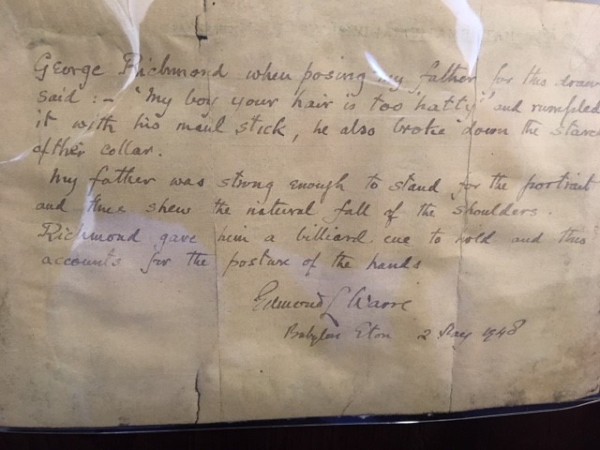 George Richmond when posing my father for this draw
said :- "My boy your hair is too hatty" and rumpled
it with his maul stick, he also broke down the starch
of the collar.
My father was strong enough to stand for the portrait
and thus shew the natural fall of the shoulders.
Richmond gave him a billiard cue to hold and this
accounts for the posture of the hands
Edmond L Warre
Babylon Eton 2 May 1948